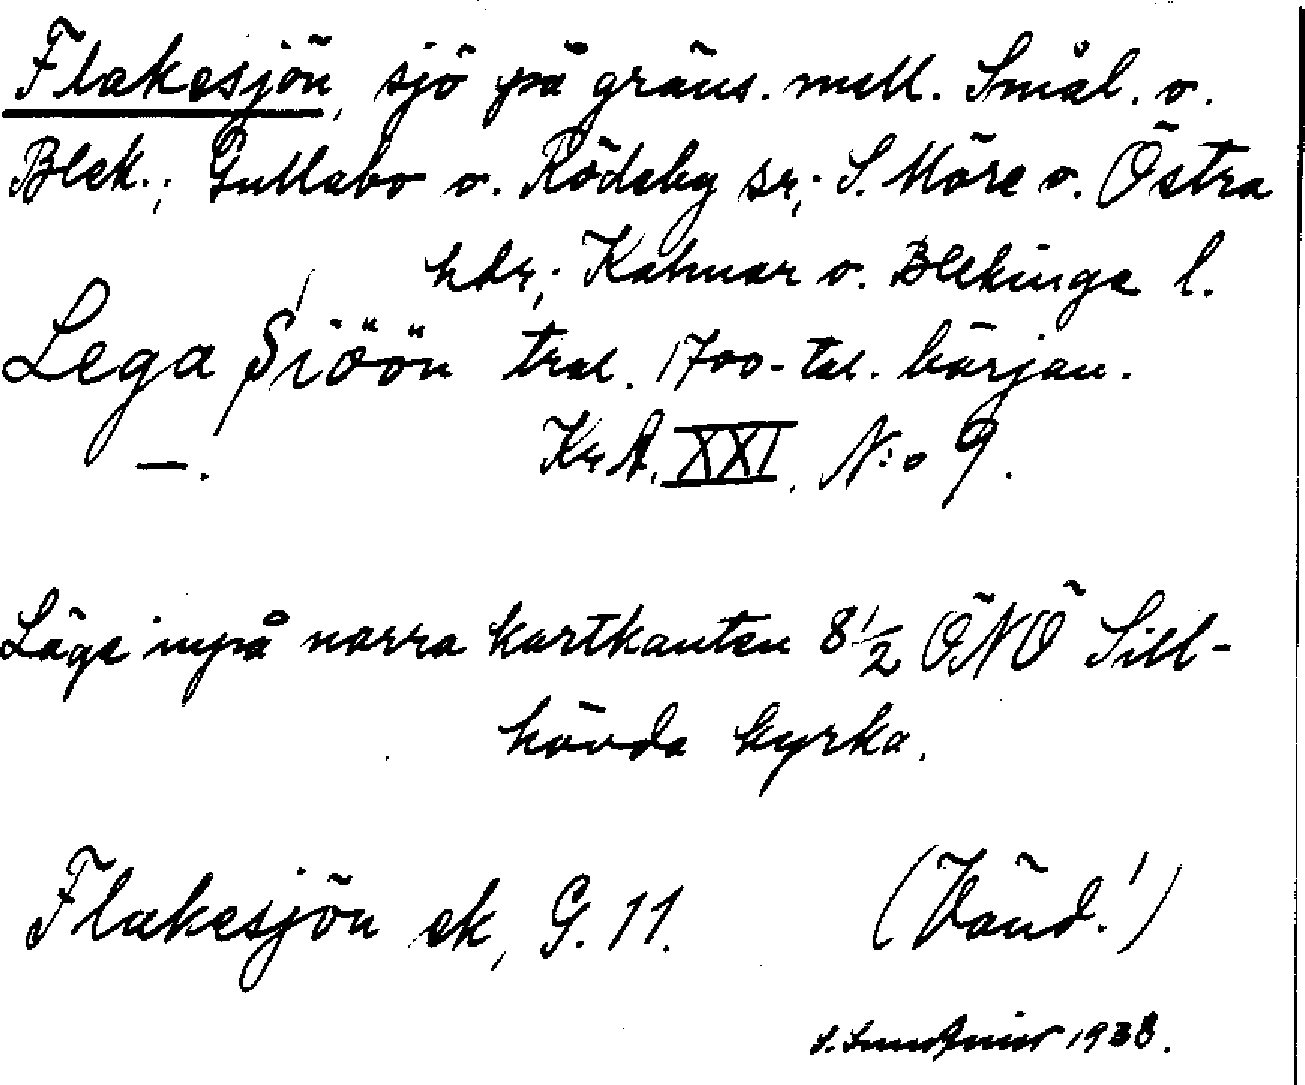 Flakesjön, sjö på gräns. mell. Smål. o.
Blek.; Gullabo o. Rödeby sr; S. Möre o. Östra
hdr; Kalmar o. Blekinge l.
Lega Siöön trol. 1700-tal. början.
—. Kr A. XXI. N:o 9.
Läge inpå norra kartkanten 8 1/2 ÖNÖ Sill-
hövda kyrka.
Flakesjön ek, G. 11. (Vänd!)
1938.